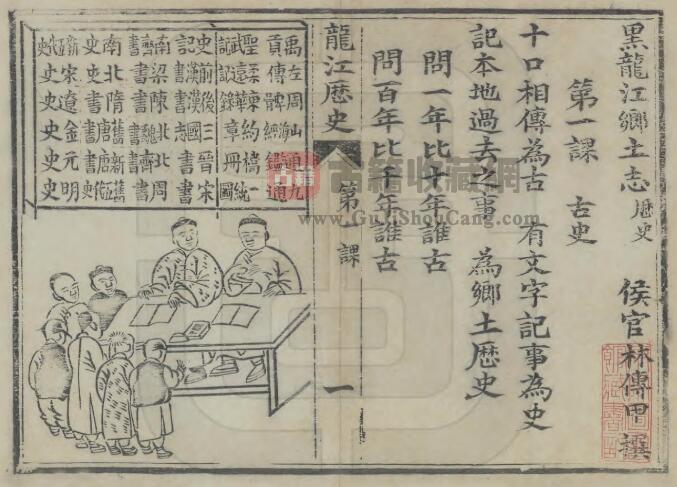 黑龍江鄉土志 歷史 侯官林傳甲撰
第一課 古史
十口相傳為古 有文字記事為史
記本地過去之事 為鄉土歷史
問一年比十年誰古
問百年比千年誰古
龍江歷史 第一課 一
禹貢 左傳 周髀 山海經 通鑑 九通
聖武記 柔遠記 東華錄 約章
史記 前漢書 後漢書 三國志 晉書 宋書
南齊書 梁書 陳書 北魏書 北齊書 北周書
南史 北史 隋書 舊唐書 新唐書
宋史 遼史 金史 元史 明史
古籍收藏網
www.GuJiShouCang.com